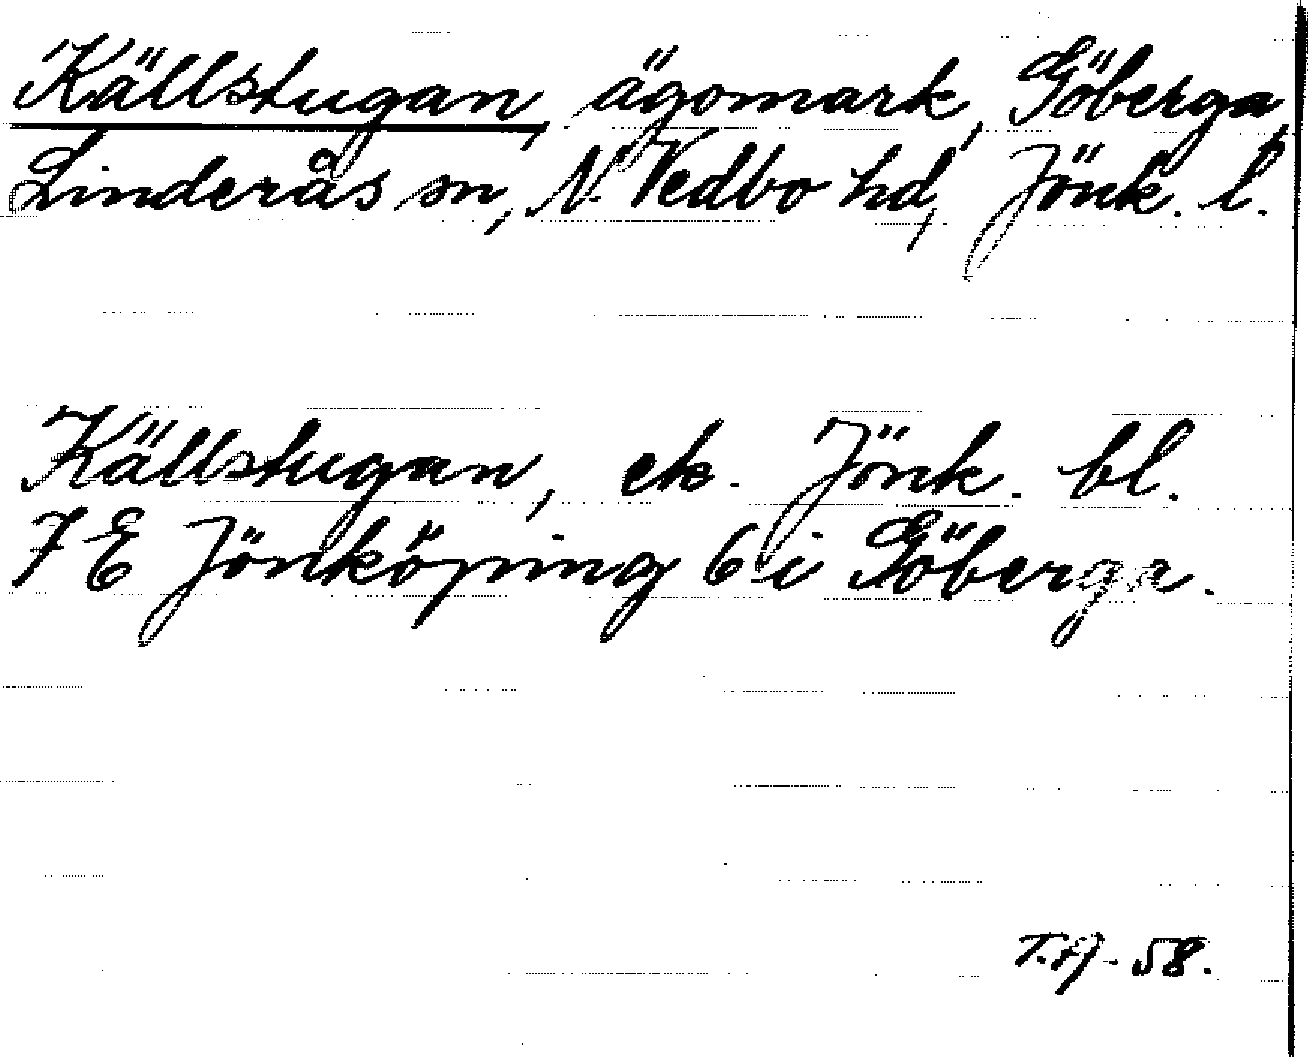 Källstugan, ägomark, Göberga,
Linderås sn, N. Vedbo hd, Jönk. l.
Källstugan, ek. Jönk. bl.
7 E Jönköping 6 i Göberga.
T.A - 58.